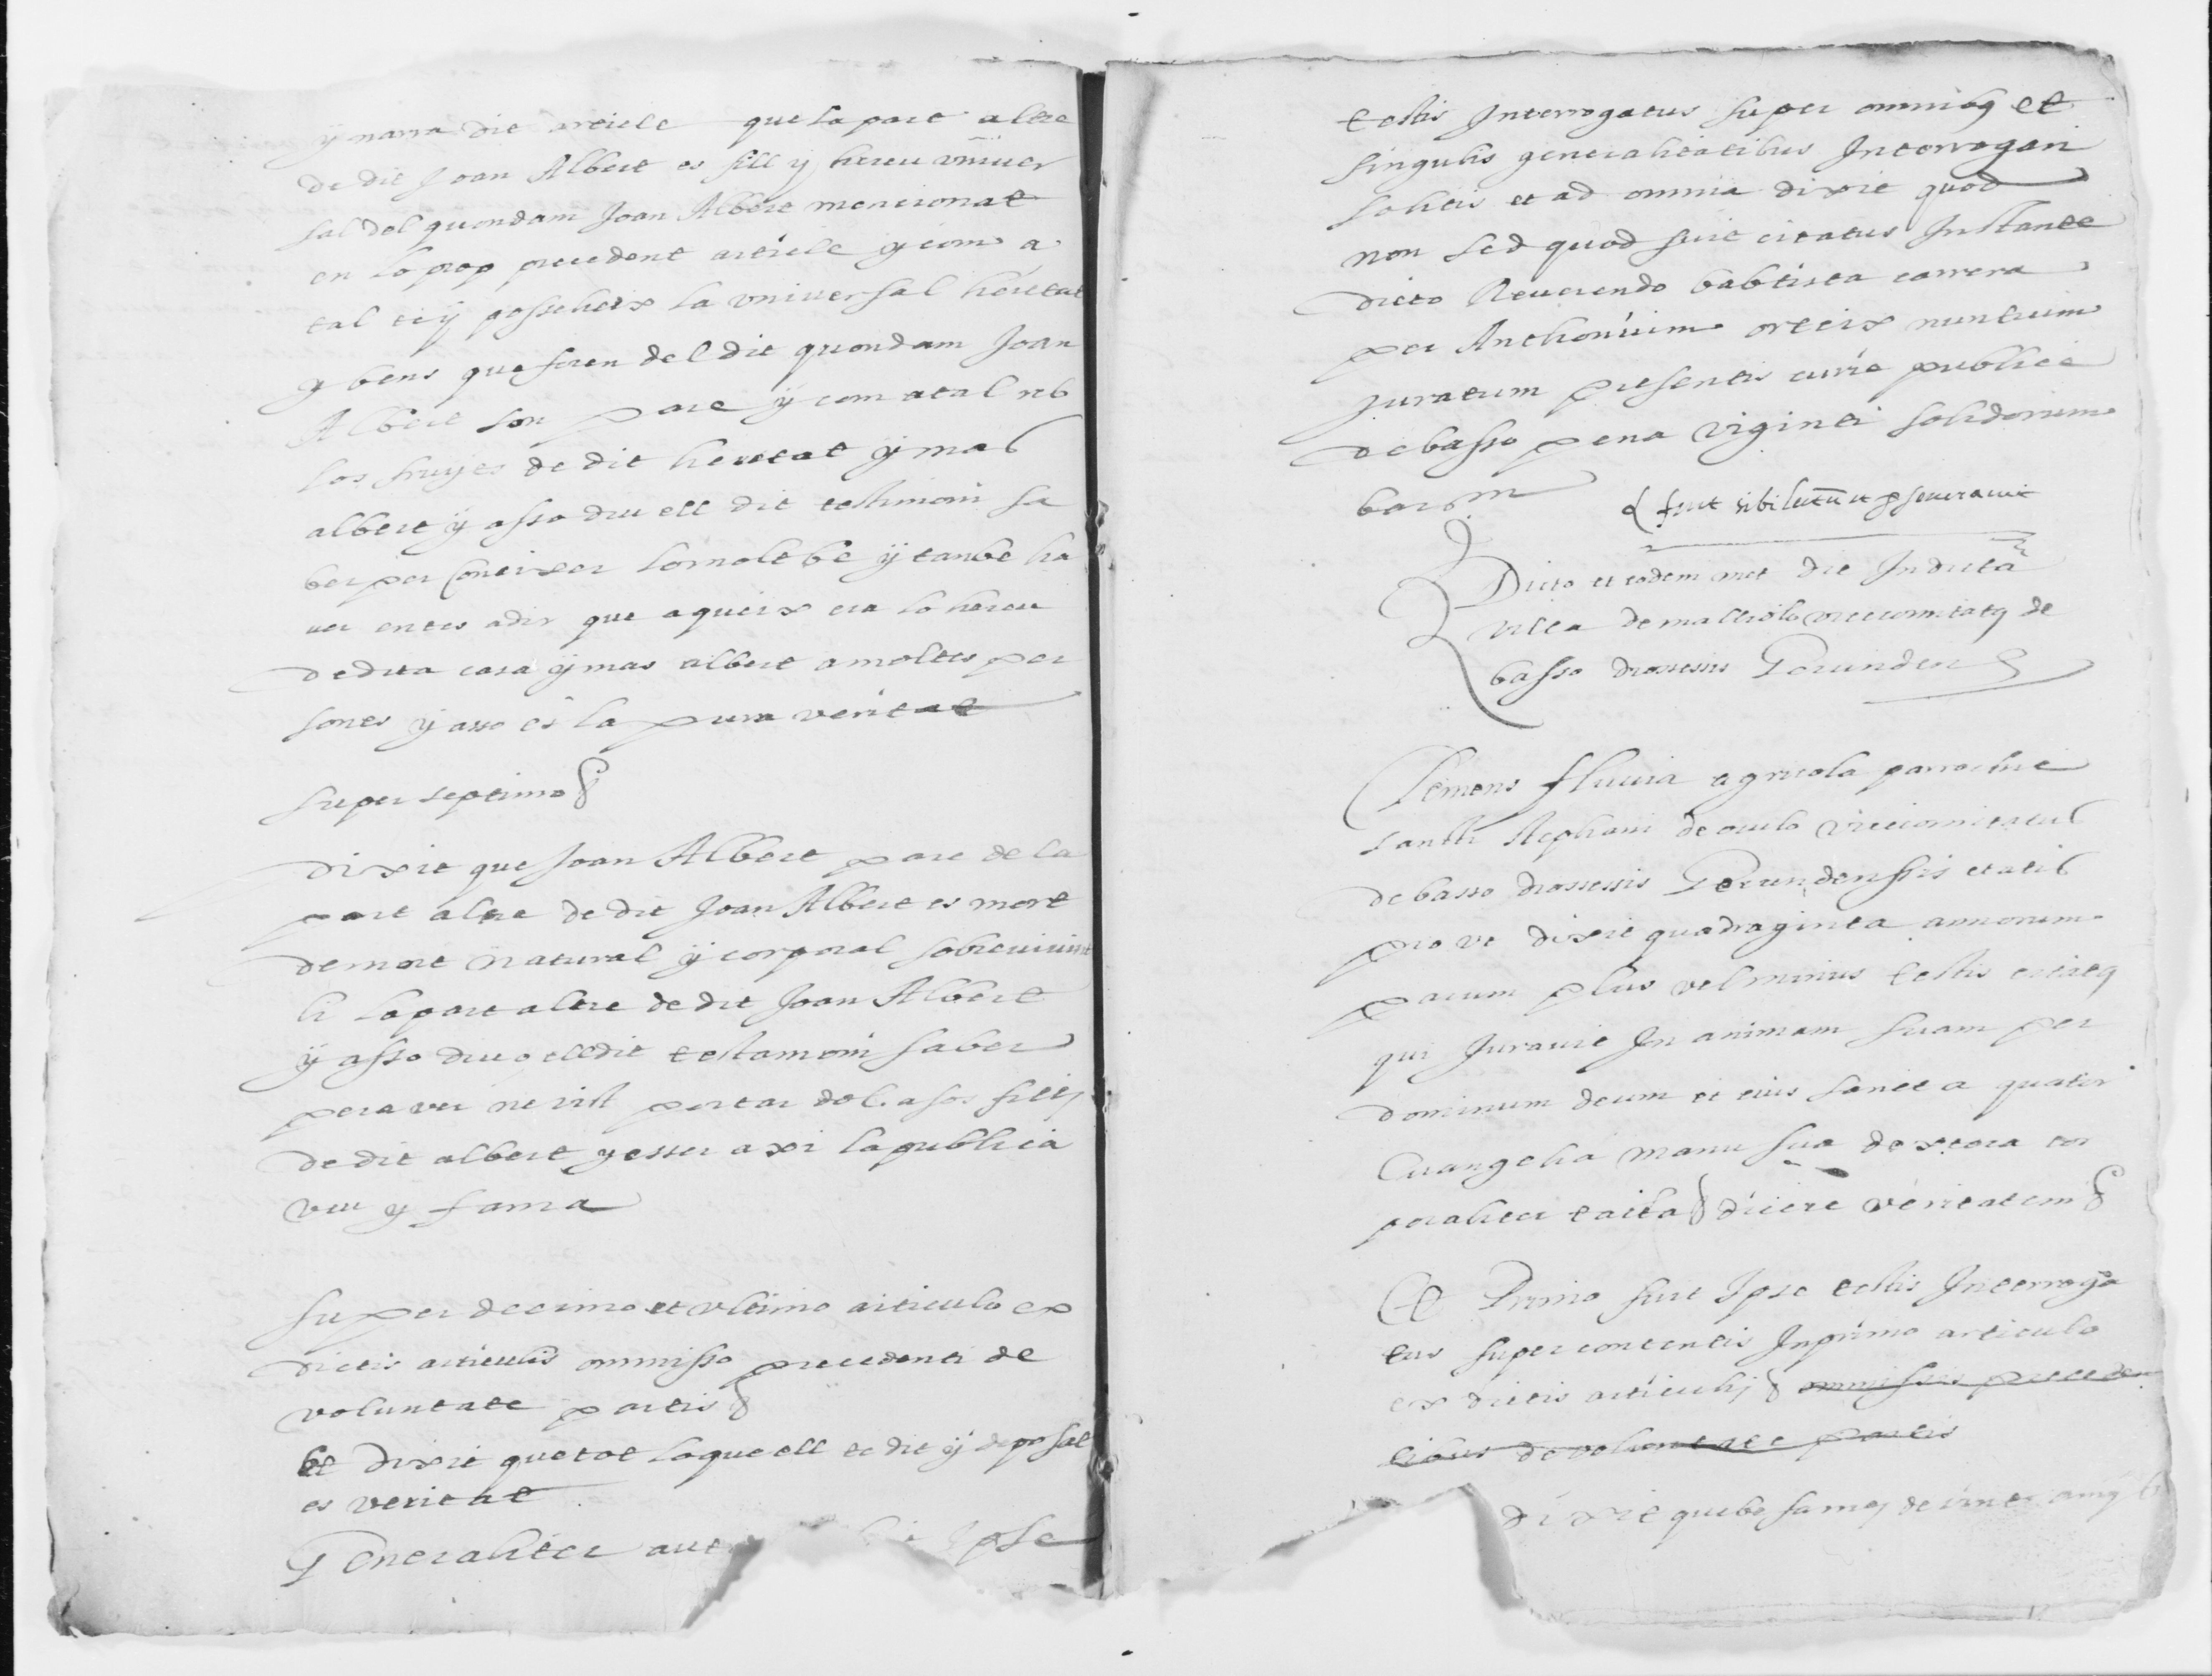 y narra dit article que la part altre
de dit Joan Albert es fill y hereu vniuer
sal del quondam Joan Albert mencionat
en lo prop precedent article y com a
tal te y posseheix la vniuersal heretat
y bens que foren del dit quondam Joan
Albert son pare y com a tal reb
los fruytes de dit heretat y mas
albert y asso diu ell dit testimoni sa
ber per Coneixer lo molt be y tanbe ha
uer entes a dir que aqueix era lo hereu
de dita casa y mas albert a moltes per
sones y asso es la pura veritat
super septimo
Dixit que Joan Albert pare de la
part altre de dit Joan Albert es mort
de mort natural y corporal sobreuiuint
li la part altre de dit Joan Albert
y asso diu elldit testamoni saber
per aver ne vist portar dol a sos fills
de dit albert y esser axi la publica
veu y fama
super decimo et vltimo articulo ex
dictis articulis ommisso precedenti de
voluntate partis
et Dixit que tot lo que ell te dit y deposat
es veritat
Generaliter aut ipse
testis Interrogatus super omnibq et
singulis generalitatibus Interrogari
solitis et ad omnia dixit quod
non sed quod fuit citatus Instante
dicto Reuerendo babtista carrera
per Anthonium orteix nuntium
juratum presentis curie publice
de basso pena viginti solidorum
bar m
fuit sibi lectū et pseuerauit
Dicto et eodem met die In dicta
villa de malleolo vicecomitatq de
basso diocesis Gerunden
Clemens fluuia agricola parrochie
sancti stephani de oculo vicecomitatus
de basso diocessis Gerundenssis etatis
pro vt dixit quadraginta annorum
parum plus vel minus testis citatq
qui Jurauit In animam suam per
dominum deum et eius sancta quator
Euangelia manu sua dextera cor
poraliter tacta dicere veritatem
Et Primo fuit Ipse testis Interroga
tus super contentis In primo articulo
ex dictis articulis ommissis preceden
tibus de voluntate partis
dixit que be sa mes de